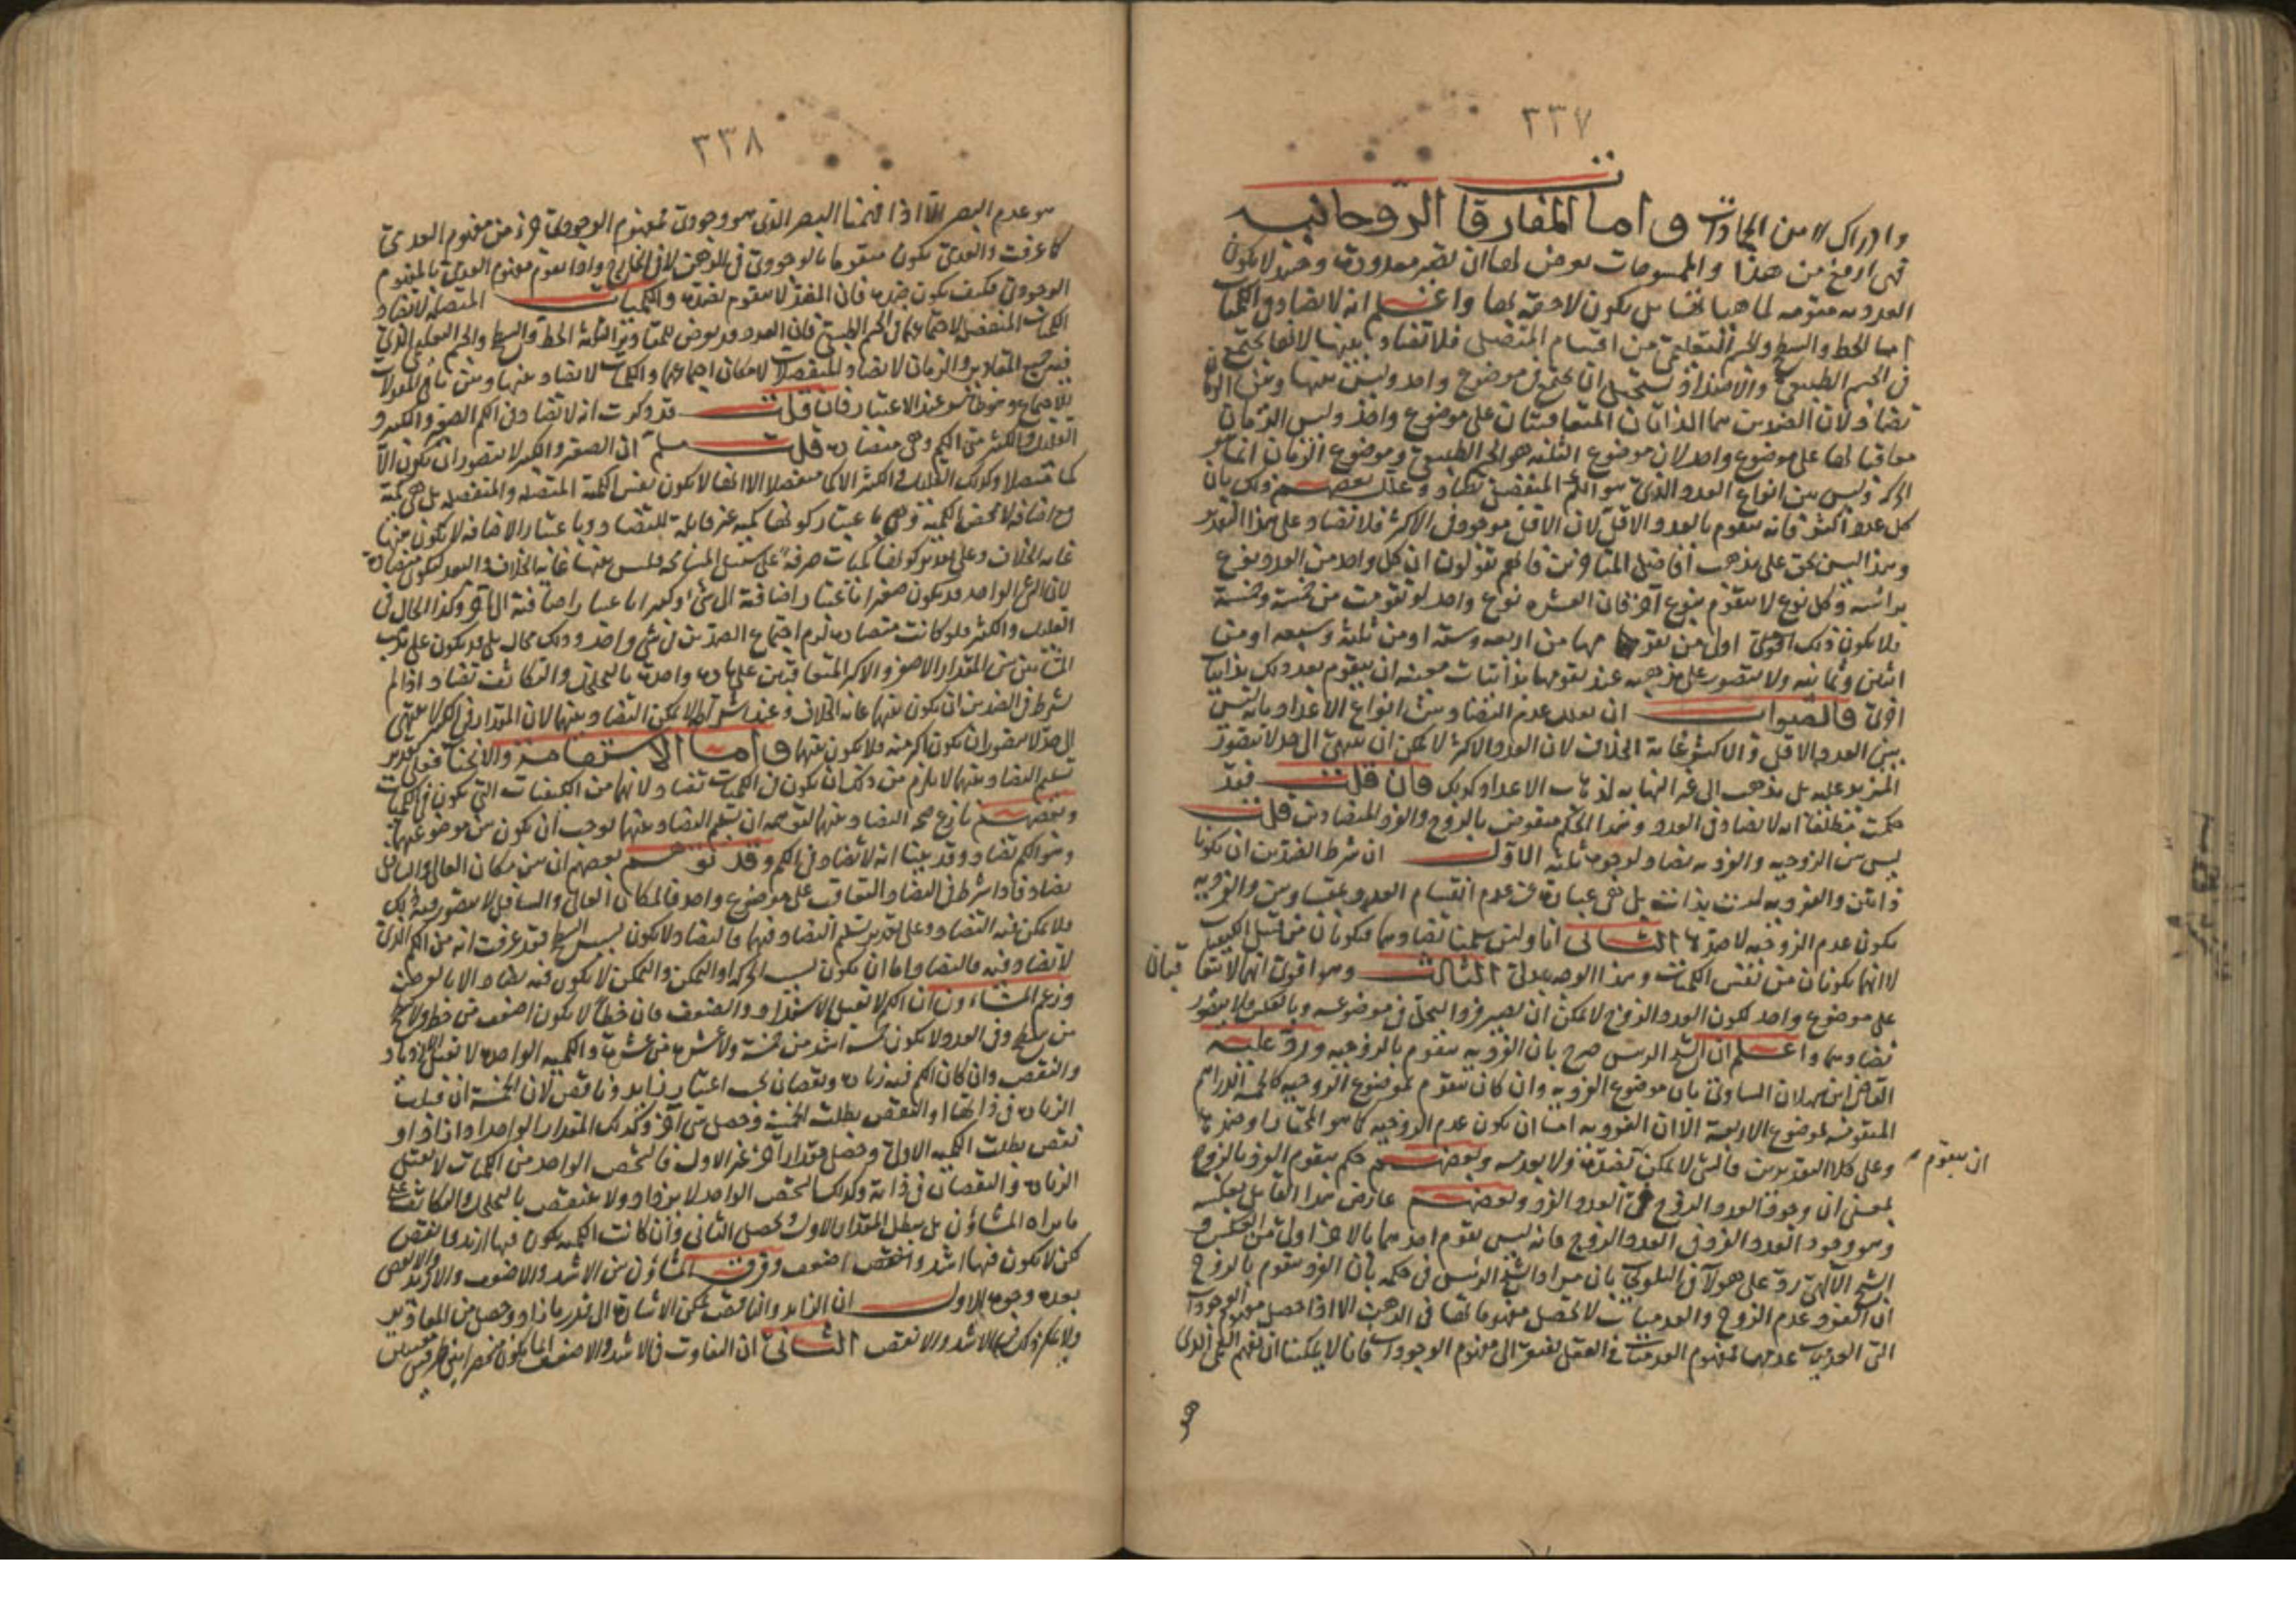 ٣٣٧
وادراك لا من الجمادات واما المفارقات الروحانيه
فهى ارفع من هذا والملموسات يعرض لها ان تصير معدودة وحينئذ لا يكون
العددية مقومة لماهياتها بل يكون لاحقة لها واعلم انه لا تضاد فى الكميات
اما الخط والسطح والجسم التعليمى من اقسام المتصل فلا تضاد بينها لانها يجتمع
فى الجسم الطبيعى والاضداد يستحيل ان يجتمع فى موضوع واحد وليس بينها وبين الزمان
تضاد لان الضدين هما الذاتان المتعاقبتان على موضوع واحد وليس الزمان
معاقبا لها على موضوع واحد لان موضوع الثلثه هو الجسم الطبيعى وموضوع الزمان انما هو
الحركه وليس بين انواع العدد الذى هو الكم المنفصل تضاد وعلل بعضهم ذلك بان
كل عدد اكثر فانه يتقوم بالعدد الاقل لان الاقل موجود فى الاكثر فلا تضاد على هذا التقدير
وهذا ليس بحق على مذهب افاضل المتاخرين فانهم يقولون ان كل واحد من العدد نوع
برأسه وكل نوع لا يتقوم بنوع آخر فان العشره نوع واحد لو تقومت من خمسة وخمسة
فلا يكون ذلك اولى من تقومها من اربعه وستة او من ثلثة وسبعه او من
اثنين وثمانيه ولا يتصور على مذهبه عند تقومها بذاتيات معينه ان يتقوم بعد ذلك بذاتيات
اخرى فالصواب ان يعلل عدم التضاد بين انواع الاعداد بانه ليس
بين العدد الاقل والاكثر غاية الخلاف لان العدد الاكثر لا يمكن ان ينتهى الى حد لا يتصور
المزيد عليه بل يذهب الى غير النهايه لذهاب الاعداد كذلك فان قلت فقد
حكمت مطلقا انه لا تضاد فى العدد وهذا الحكم منقوض بالزوج والفرد المتضادين قلت
ليس بين الزوجيه والفرديه تضاد لوجوه ثلثه الاول ان شرط الضدين ان يكونا
ذاتين والفرديه ليست بذات بل هى عبارة عن عدم انقسام العدد بمتساويين والفرديه
يكون عدم الزوجيه لا ضدها الثانى انا ولئن سلمنا تضادهما فيكونان من قبيل الكيفيات
لا انهما يكونان من نفس الكميات وهذا الوجه جدلى الثالث وهو اقوى انهما لا يتعاقبان
على موضوع واحد لكون العدد الزوج لا يمكن ان يصير فردا البتة فى موضوعه وبالعكس فلا يتصور
تضادهما واعلم ان الشيخ الرئيس صرح بان الفرديه يتقوم بالزوجيه ورد عليه
القاضى ابن سهلان الساوى بان موضوع الفرديه وان كان يتقوم بموضوع الزوجيه كالخمسه الفرد
المتقومه لموضوع الاربعة الا ان الفرديه اما ان يكون عدم الزوجيه كما هو المختار او ضدها
وعلى كلا التقديرين فالشئ لا يمكن ان يتقوم بضده ولا بعدمه وبعضهم حكم بتقوم الفرد بالزوج
بمعنى ان وجود العدد الزوج فى العدد الفرد وبعضهم عارض هذا القائل بعكسه
وهو وجود العدد الفرد فى العدد الزوج فانه ليس تقوم احدهما بالاخر اولى من العكس و
الشيخ الالهى رد على هولاء فى التلويحات بان مراد الشيخ الرئيس فى حكمه بان الفرد يتقوم بالزوج
ان الفرد عدم الزوج والعدميات لا يحصل مفهوماتها فى الذهن الا اذا حصل مفهوم الوجودات
التى العدميات عدمها فمفهوم العدميات فى العقل يفتقر الى مفهوم الوجودات فانا لا يمكننا ان نفهم العمى الذى
هو
٣٣٨
هو عدم البصر الا اذا فهمنا البصر الذى هو وجودى فمفهوم الوجودى جزء من مفهوم العدمى
كما عرفت والعدمى يكون متقوما بالوجودى فى الذهن لا فى الخارج واذا تقوم مفهوم العدمى بالمفهوم
الوجودى فكيف يكون ضده فان الضد لا يتقوم بضده والكميات المتصلة لا تضاد
الكميات المنفصله لاجتماعهما فى الجسم الطبيعى فان العدد قد يعرض للمقادير الثلثه الخط والسطح والجسم التعليمى الذى
فيه جميع المقادير والزمان لا تضاد المنفصلات لامكان اجتماعهما والكميات لا تضاد بينها وبين باقى المقولات
للاجتماع وموضوع عند الاعتبار فان قلت قد ذكرت انه لا تضاد فى الكم والصغر والكبر و
القله والكثره من الكم وهى متضاده قلت مسلم ان الصغر والكبر لا يتصور ان يكون الا
كما متصلا وكذلك القله والكثره الا كما منفصلا الا انها لا يكون نفس الكمية المتصله والمنفصله بل هى كمية
مع اضافه لا محض الكميه وهى باعتبار كونها كميه غير قابلة للتضاد وباعتبار الاضافه لا يكون بينها
غايه الخلاف وعلى تقدير كونها كميات صرفة على سبيل المسامحه فليس بينها غايه الخلاف والبعد ليكون متضادة
لان الشئ الواحد قد يكون صغيرا باعتبار اضافته الى شئ وكبيرا باعتبار اضافته الى آخر وكذا الحال فى
القله والكثره فلو كانت متضاده لزم اجتماع الضدين فى شئ واحد وذلك محال بل قد يكون على مذهب
المشائين بين المقدار الاصغر والاكبر المتعاقبين على ماده واحدة بالتخلخل والتكاثف تضاد اذا لم
يشترط فى الضدين ان يكون بينهما غايه الخلاف وعند اشتراطه لا يمكن التضاد بينهما لان المقدار فى الكبر لا ينتهى
الى حد لا يتصور ان يكون اكبر منه فلا يكون بينهما واما الاستقامة والانحنا فعلى تقدير
تسليم التضاد بينهما لا يلزم من ذلك ان يكون فى الكميات تضاد لانهما من الكيفيات التى يكون فى الكميات
وبعضهم نازع فى صحة التضاد بينهما لتوهمه ان تسليم التضاد بينهما يوجب ان يكون بين موضوعيهما
وهو الكم تضاد وقد بينا انه لا تضاد فى الكم وقد توهم بعضهم ان بين مكان العالى والسافل
تضاد فاذا شرط فى التضاد التعاقب على موضوع واحد فالمكان العالى والسافل لا يتصور فيه ذلك
فلا يمكن فيه التضاد وعلى تقدير تسليم التضاد فيهما فالتضاد لا يكون بسبب السطح فقد عرفت انه من الكم الذى
لا تضاد فيه فالتضاد اما ان يكون بسبب الحركه او التمكن والتمكن لا يكون فيه تضاد الا بالعرض
وزعم المشاءون ان الكم لا تقبل الاشتداد والضعف فان خطا لا يكون اضعف من خط ولا سطح
من سطح وفى العدد لا يكون خمسة اشد من خمسة ولا عشره من عشرة والكميه الواحده لا تقبل الازدياد
والنقص وان كان الكم فيه زياده ونقصان بحسب اعتبار زايد وناقص لان الخمسة ان قبلت
الزياده فى ذاتها او النقص بطلت الخمسة وحصل شئ آخر وكذلك المقدار الواحد اذا زاد او
نقص بطلت الكميه الاولى وحصل مقدار آخر غير الاول فالشخص الواحد من الكميات لا يقبل
الزياده والنقصان فى ذاته وكذلك الشخص الواحد لا يزداد ولا ينتقص بالتخلخل والتكاثف على
ما يراه المشاؤن بل يبطل المقدار الاول ويحصل الثانى وان كانت الكميه يكون فيها ازيد وانقص
لكن لا يكون فيها اشد وانقص اضعف وفرق المشاؤن بين الاشد والاضعف والازيد والانقص
بعده وجوه الاول ان الزايد والناقص يمكن الاشارة الى قدر ما زاد وحصل من المقادير
ولا يمكن ذلك فى الاشد والانقص الثانى ان التفاوت فى الاشد والاضعف انما يكون منحصرا بين طرفين